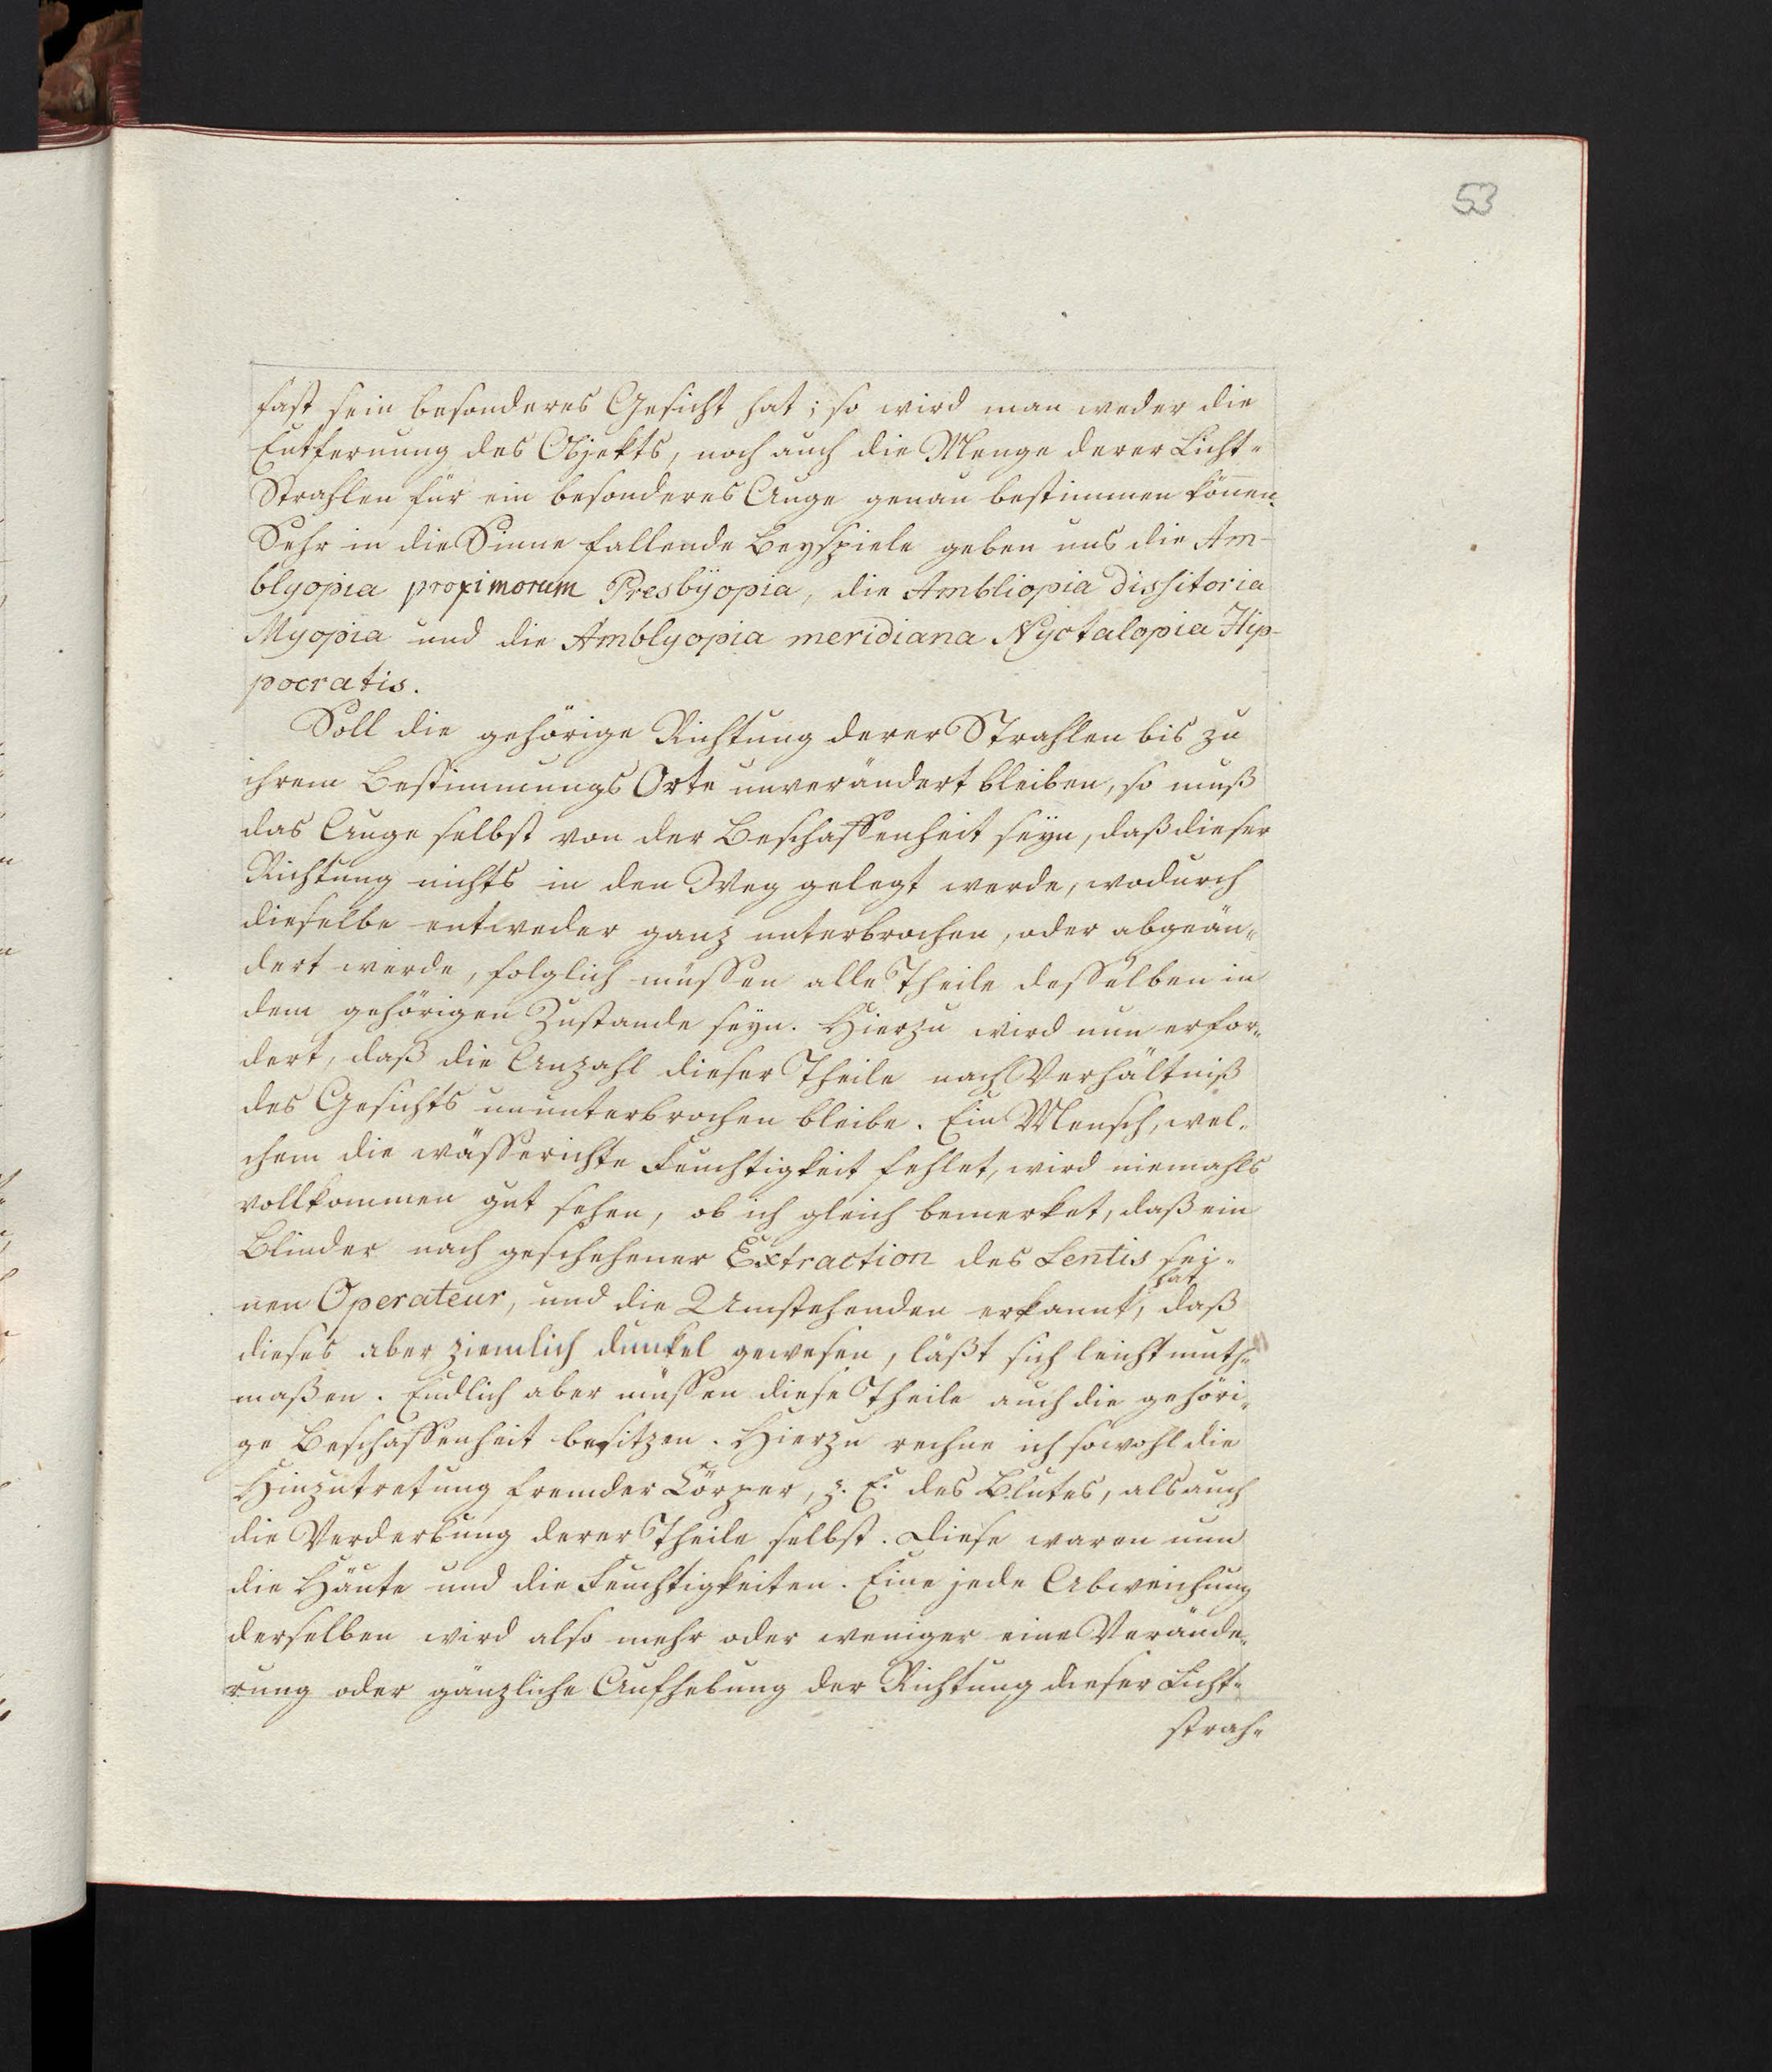 53
fast sein besonderes Gesicht hat; so wird man weder die
Entfernung des Objekts, noch auch die Menge derer Licht-
Strahlen für ein besonderes Auge genau bestimmen können.
Sehr in die Sinne fallende Beyspiele geben uns die Am-
blyopia proximorum Presbÿopia, die Ambliopia dissitoria
Myopia und die Amblyopia meridiana Nyctalopia Hip-
pocratis.
Soll die gehörige Richtung derer Strahlen bis zu
ihrem Bestimmungs Orte unverändert bleiben, so muß
das Auge selbst von der Beschaffenheit seyn, daß dieser
Richtung nichts in den Weg gelegt werde, wodurch
dieselbe entweder ganz unterbrochen, oder abgeän-
dert werde, folglich müssen alle Theile desselben in
dem gehörigen Zustande seyn. Hierzu wird nun erfor-
dert, daß die Anzahl dieser Theile nach Verhältniß
des Gesichts ununterbrochen bleibe. Ein Mensch, wel-
chem die wässerichte Feuchtigkeit fehlet, wird niemahls
vollkommen gut sehen, ob ich gleich bemerket, daß ein
Blinder nach geschehener Extraction des Lentis sei-
nen Operateur, und die Umstehenden erkannt hat, daß
dieses aber ziemlich dunkel gewesen, läßt sich leicht muth-
maßen. Endlich aber müssen diese Theile auch die gehöri-
ge Beschaffenheit besitzen. Hierzu rechne ich sowohl die
Hinzutretung fremder Cörper, z. E. des Blutes, als auch
die Verderbung derer Theile selbst. Diese waren nun
die Häute und die Feuchtigkeiten. Eine jede Abweichung
derselben wird also mehr oder weniger eine Verände-
rung oder gänzliche Aufhebung der Richtung dieser Licht-
strah-